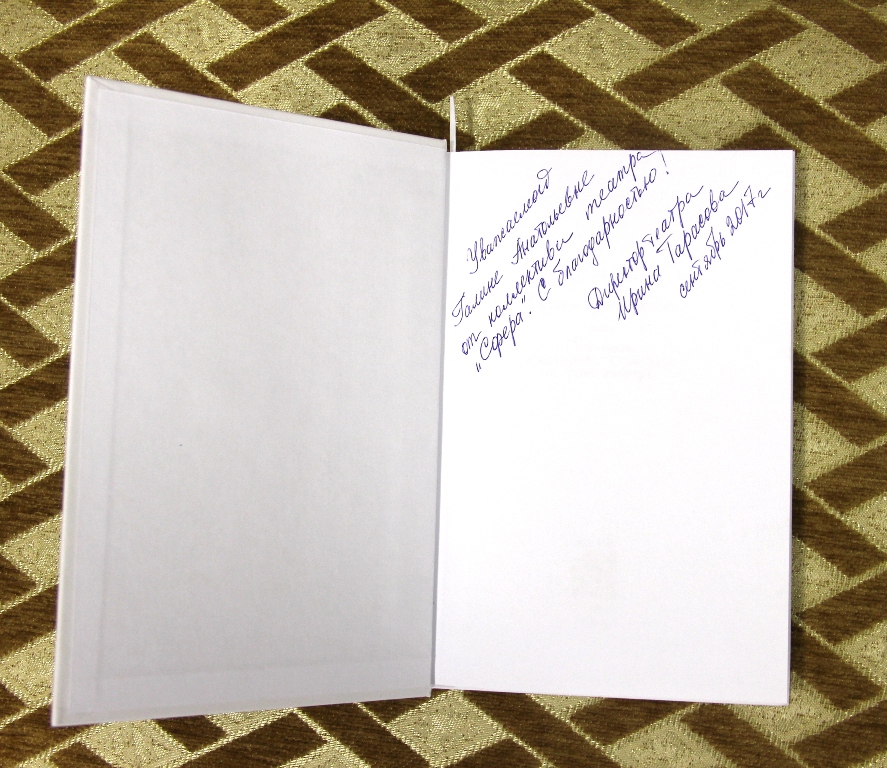 Уважаемой
Галине Анатольевне
от коллектива театра
"Сфера". С благодарностью!
Директор театра
Ирина Тарасова
сентябрь 2017 г